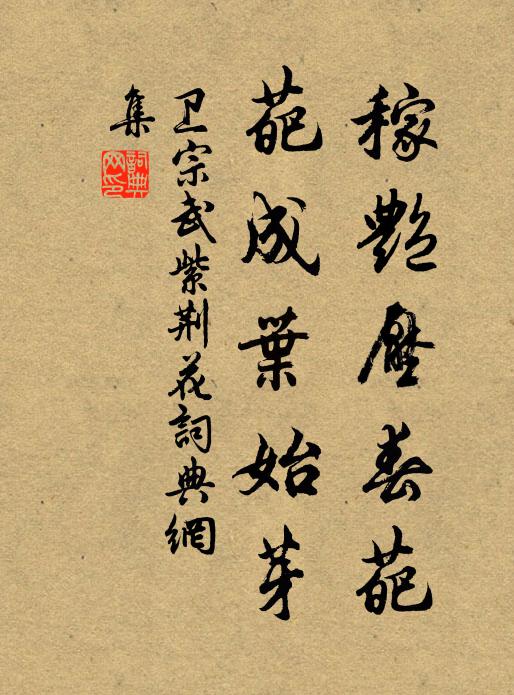 稼艷壓春葩
葩成葉始芽
卫宗武紫荆花詞典網
集
詞典網印